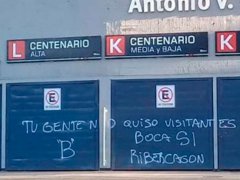 Antonio V.
L CENTENARIO
ALTA
K CENTENARIO
MEDIA y BAJA
K
TU GENTE NO QUISO VISITANTES
"B" BOCA SI
RIBERCAGON